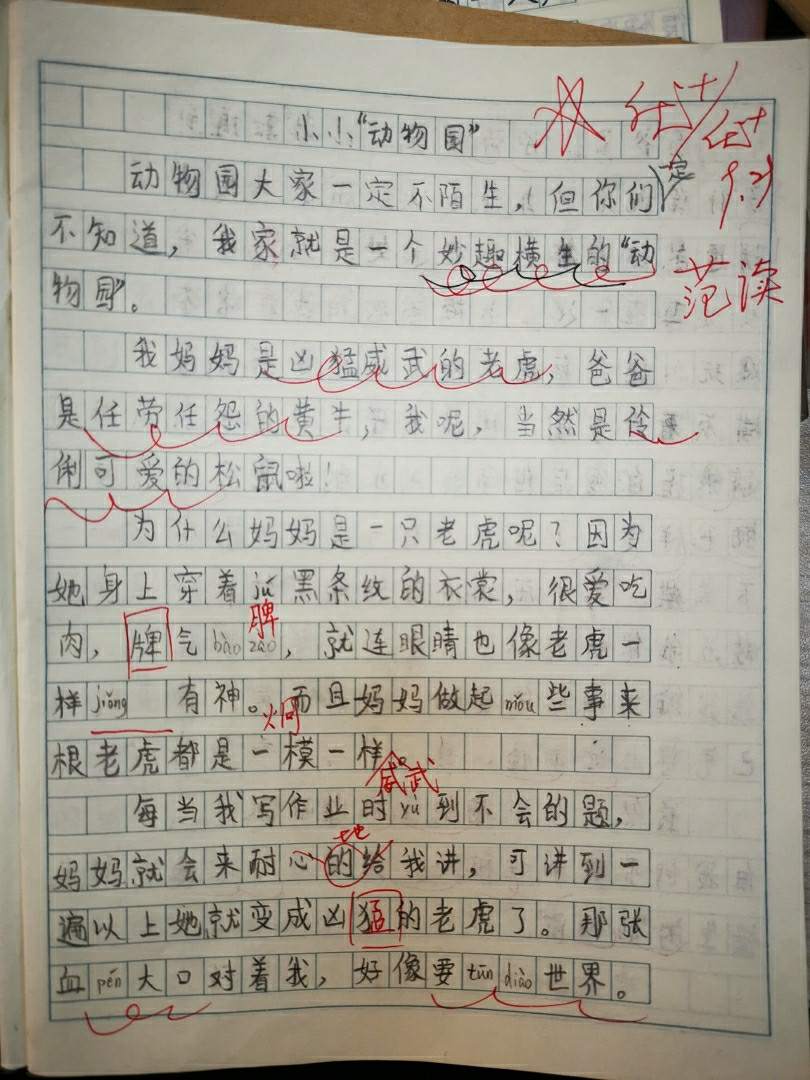 小小“动物园”
动物园大家一定不陌生，但你们一定
不知道，我家就是一个妙趣横生的“动
物园”。
范读
我妈妈是凶猛威武的老虎，爸爸
是任劳任怨的黄牛，我呢，当然是伶
俐可爱的松鼠啦！
为什么妈妈是一只老虎呢？因为
她身上穿着jú黑条纹的衣裳，很爱吃
脾
肉，牌气bào zào，就连眼睛也像老虎一
样jiǒng 有神。而且妈妈做起mǒu些事来
炯
根老虎都是一模一样。
威武
每当我写作业时yù到不会的题，
地
妈妈就会来耐心的给我讲，可讲到一
遍以上她就变成凶猛的老虎了。那张
血pén大口对着我，好像要tūn diào世界。